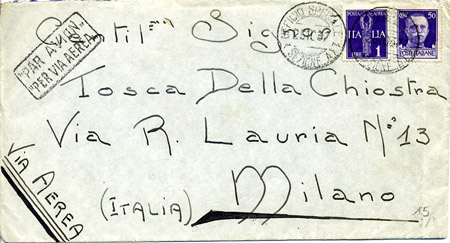 "PAR AVION"
"PER VIA AEREA"
Gentil.ma Sig.
UFFICIO SPECIALE
POSTA AEREA
ITALIA
LIRE 1
50
POSTE ITALIANE
Tosca Della Chiostra
Via R. Lauria N° 13
Milano
(ITALIA)
VIA AEREA